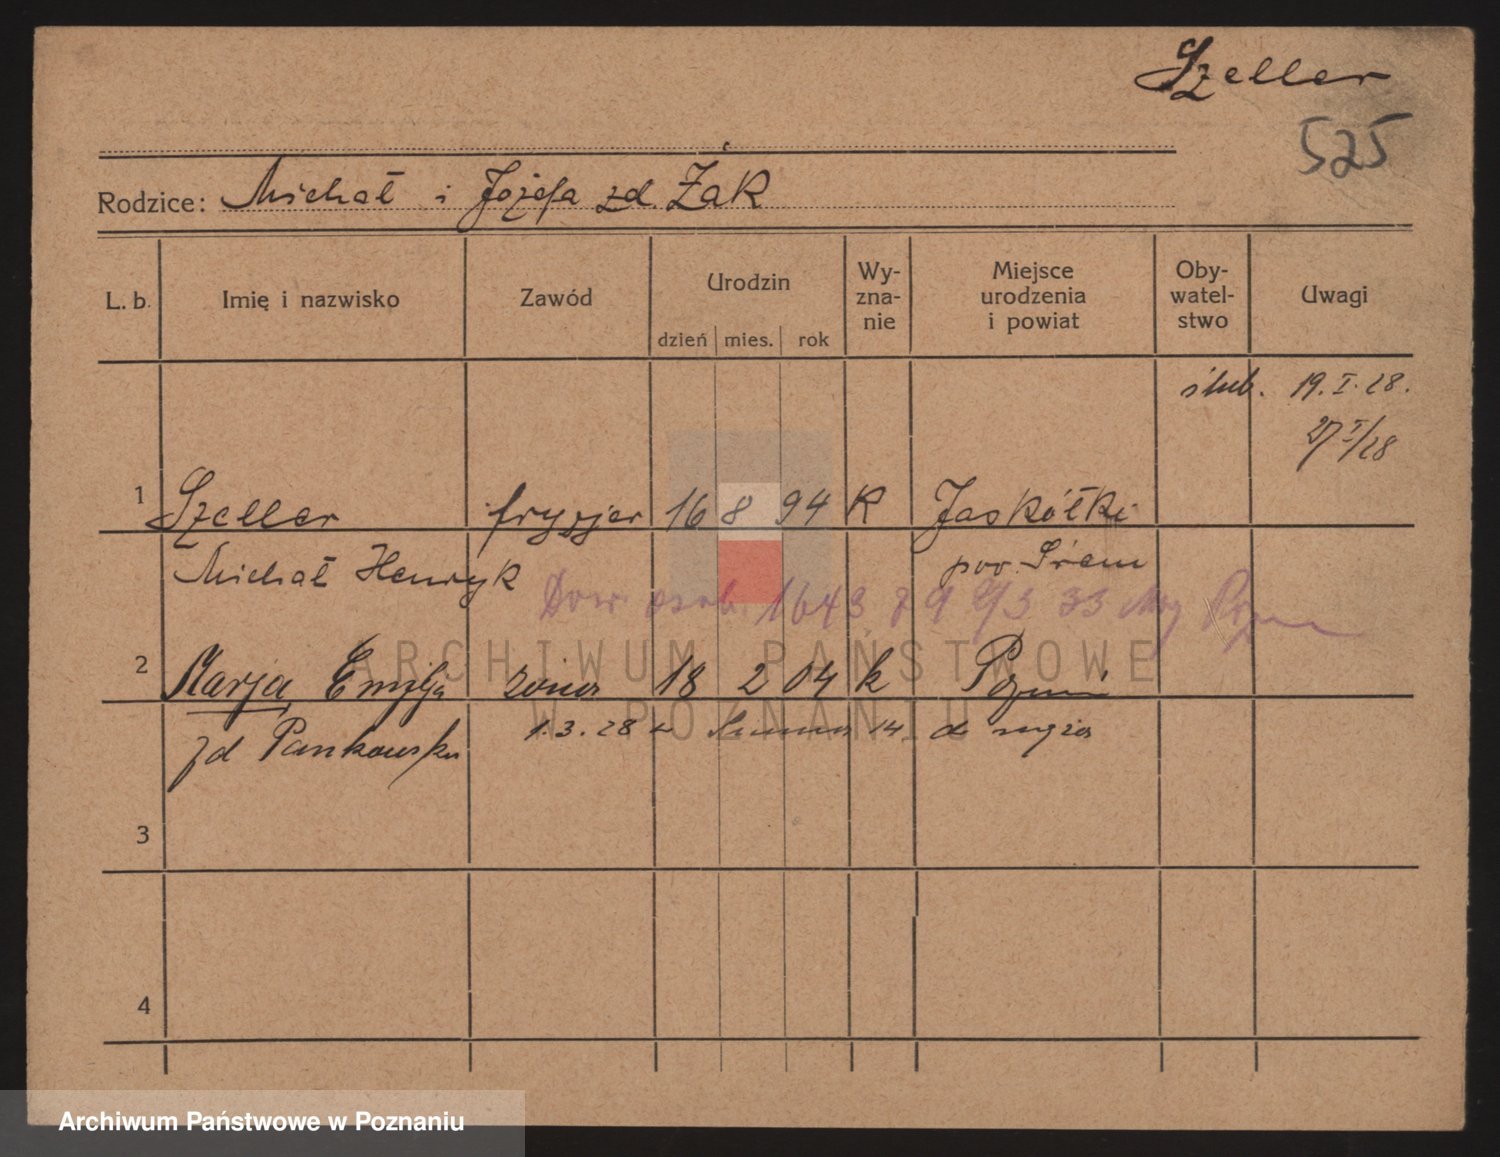 Szeller
525
Rodzice: Michał i Józefa zd. Żak
L. b. Imię i nazwisko Zawód Urodzin dzień mies. rok Wy-zna-nie Miejsce urodzenia i powiat Oby-watel-stwo Uwagi
ślub. 19. I. 28.
27 I/28
1 Szeller fryzjer 16 8 94 K Jaskółki
Michał Henryk pow. Śrem
Dow. osob. 1643 33
2 Marja Emilja żona 18 2 04 k Poznań
zd Pankowska 1.3.28 14 do męża
3
4
ARCHIWUM PAŃSTWOWE
W POZNANIU
Archiwum Państwowe w Poznaniu